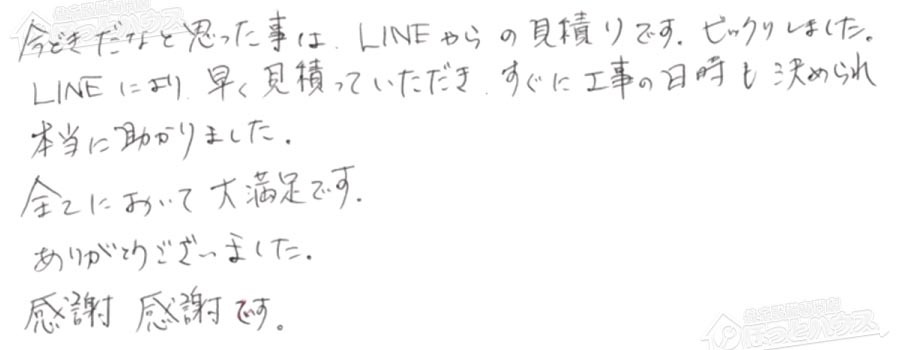 今どきだなと思った事は、LINEからの見積りです。ビックリしました。
LINEにより、早く見積っていただき、すぐに工事の日時も決められ
本当に助かりました。
全てにおいて大満足です。
ありがとうございました。
感謝 感謝です。
ほっとハウス